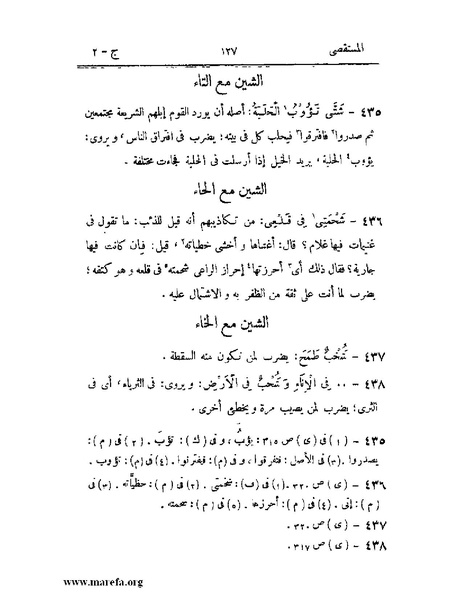 المستقصى ١٢٧ ج - ٢
الشين مع التاء
٤٣٥ - شَتَّى تَؤُوبُ الْحَلَبَةُ: أصله أن يورد القوم إبلهم الشريعة مجتمعين
ثم صدروا فافترقوا فيحلب كل فى بيته؛ يضرب فى افتراق الناس، و يروى:
يؤوب الحلبة، يريد الخيل إذا أرسلت فى الحلبة فجاءت مختلفة .
الشين مع الحاء
٤٣٦ - شَحْمَتِى فِى قَلْعِى: من تكاذيبهم أنه قيل للذئب: ما تقول فى
غنيمات فيها غلام؟ قال: أغتنمها و أخشى خطياته، قيل: فان كانت فيها
جارية؟ فقال ذلك أى أحرزتها إحراز الراعى شحمته فى قلعه و هو كنفه؛
يضرب لما أنت على ثقة من الظفر به و الاشتمال عليه .
الشين مع الخاء
٤٣٧ - شُخْبٌ طَمَحَ: يضرب لمن تكون منه السقطة .
٤٣٨ - .. فِى الْإِنَاءِ وَ شُخْبٌ فِى الْأَرْضِ: و يروى: فى الثرياء، أى فى
الثرى؛ يضرب لمن يصيب مرة و يخطئ أخرى .
٤٣٥ - (١) فى (ى) ص ٣١٥: يؤبُ، و فى (ك): تؤبَ . (٢) فى (م):
يصدروا. (٣) فى الأصل: فتفرقوا، و فى (م): فيفترقوا . (٤) فى (م): تؤوب .
٤٣٦ - (ى) ص ٣٢٠ .(١) فى (ف): شحمتى . (٢) فى (م): حظيَّاته . (٣) فى
(م): إنى . (٤) فى (م): أحرزها . (٥) فى (م): شحمته .
٤٣٧ - (ى) ص ٣٢٠.
٤٣٨ - (ى) ص ٣١٧.
www.marefa.org